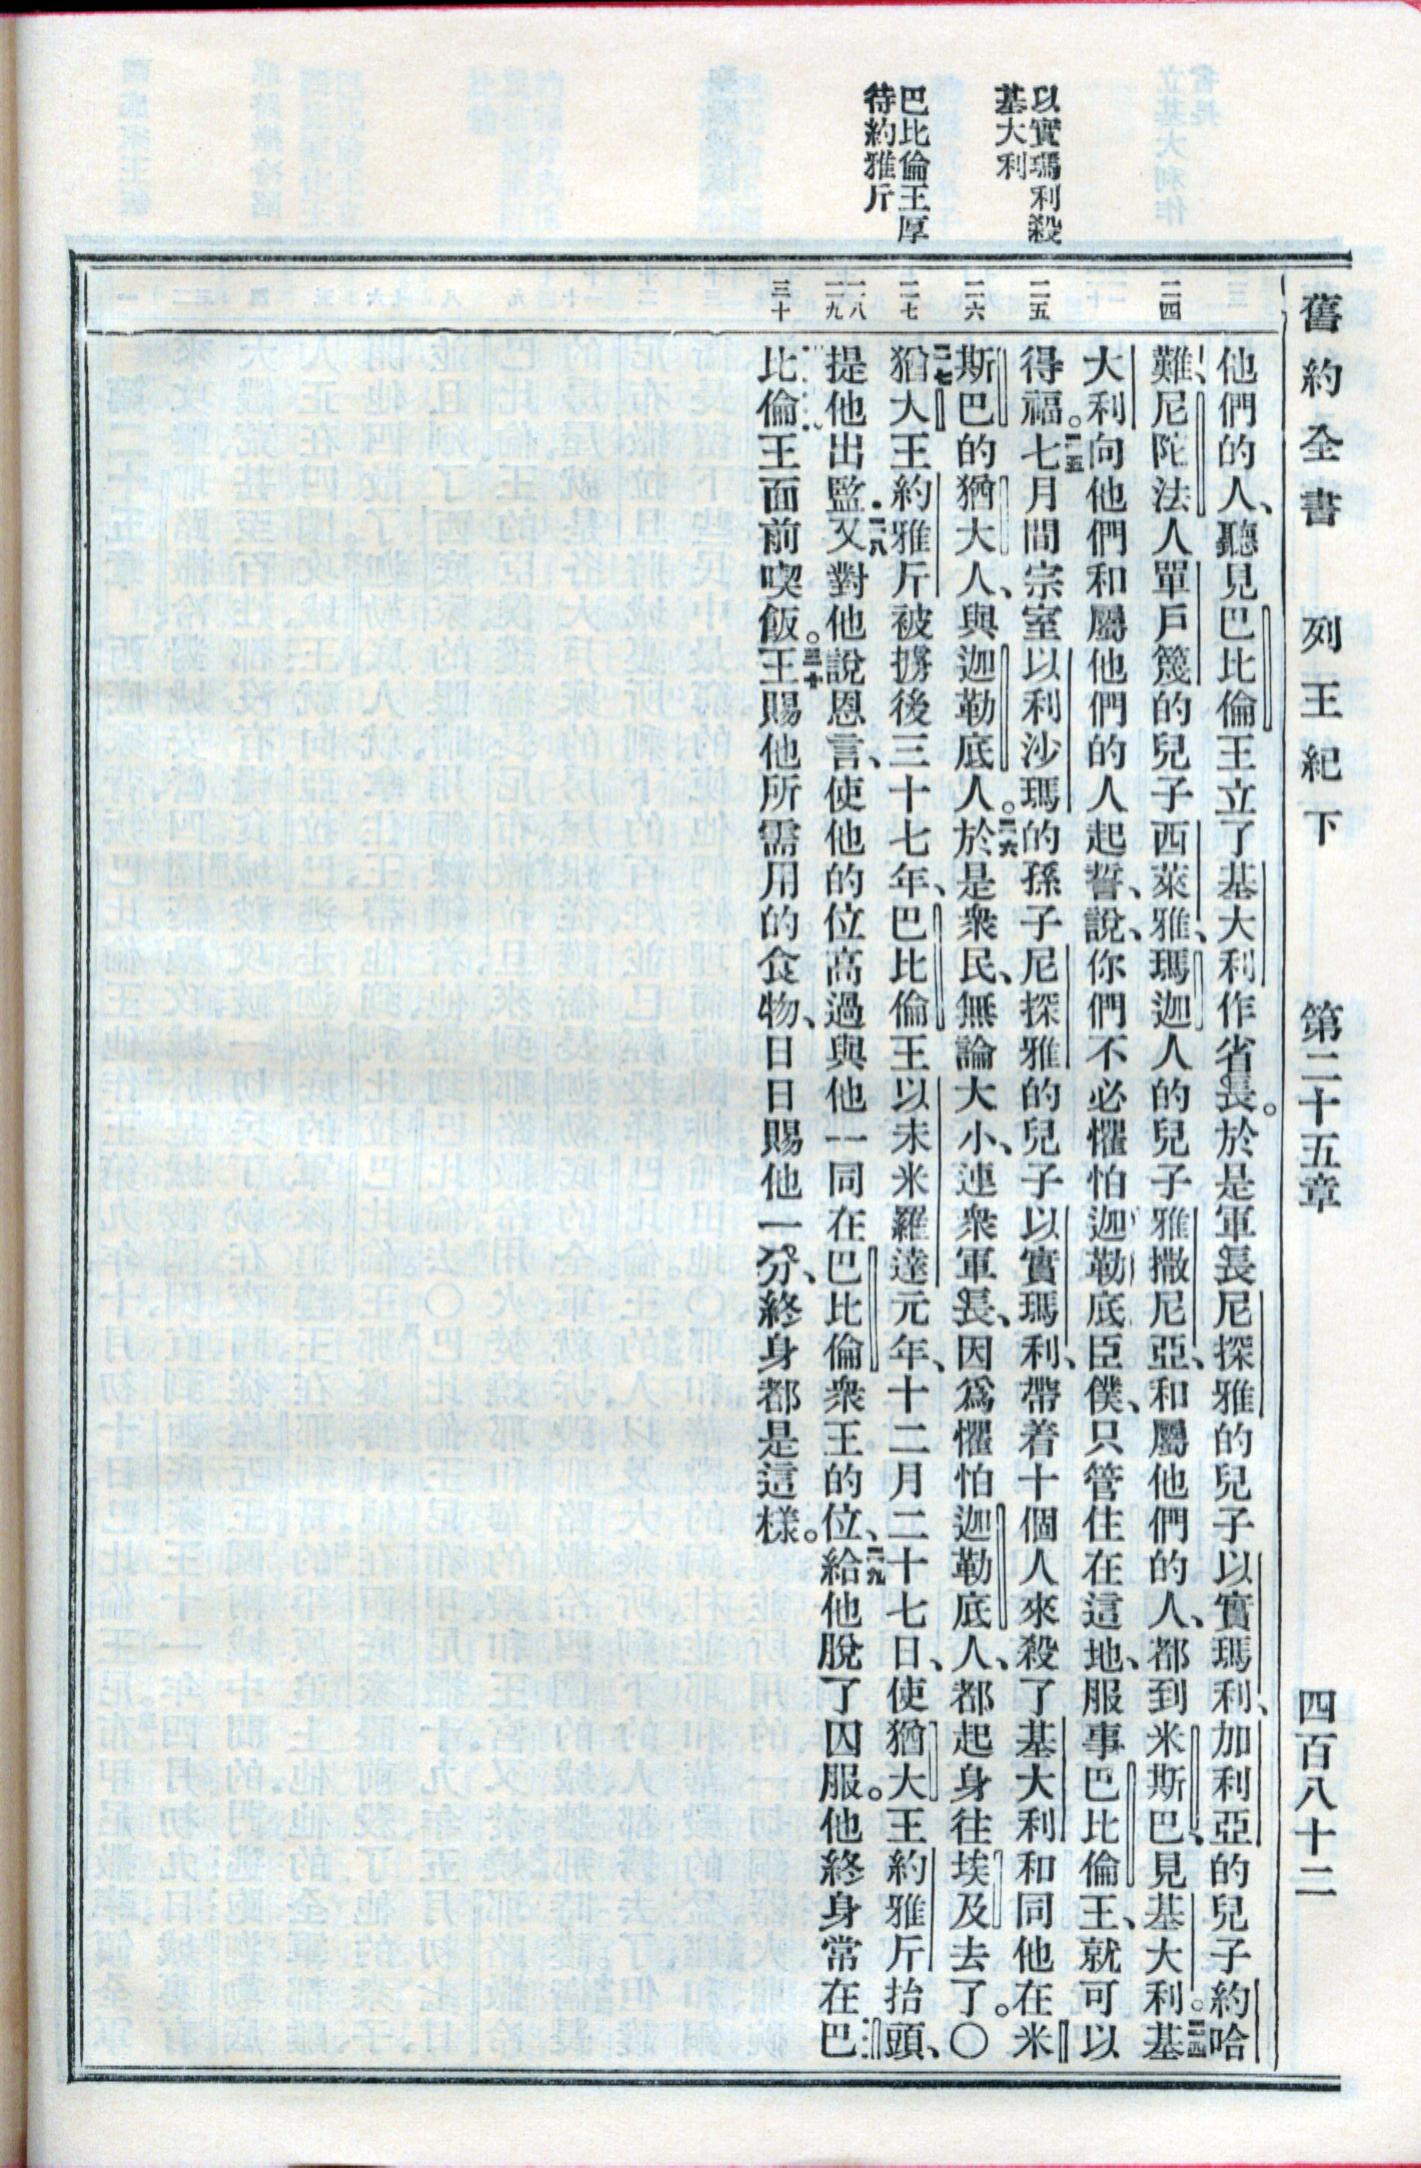 舊約全書　列王紀下　第二十五章　四百八十二
以實瑪利殺
基大利
巴比倫王厚
待約雅斤
二四
二五
二六
二七
二八
二九
三十
他們的人、聽見巴比倫王立了基大利作省長。於是軍長尼探雅的兒子以實瑪利、加利亞的兒子約哈
難、尼陀法人單戶篾的兒子西萊雅、瑪迦人的兒子雅撒尼亞、和屬他們的人、都到米斯巴見基大利。二四基
大利向他們和屬他們的人起誓、說、你們不必懼怕迦勒底臣僕、只管住在這地、服事巴比倫王、就可以
得福。二五七月間宗室以利沙瑪的孫子尼探雅的兒子以實瑪利、帶着十個人來殺了基大利和同他在米
斯巴的猶大人、與迦勒底人。二六於是衆民、無論大小、連衆軍長、因爲懼怕迦勒底人、都起身往埃及去了。〇
二七猶大王約雅斤被擄後三十七年、巴比倫王以未米羅達元年、十二月二十七日、使猶大王約雅斤抬頭、
提他出監、二八又對他說恩言、使他的位高過與他一同在巴比倫衆王的位、二九給他脫了囚服。他終身常在巴
比倫王面前喫飯。三十王賜他所需用的食物、日日賜他一分、終身都是這樣。